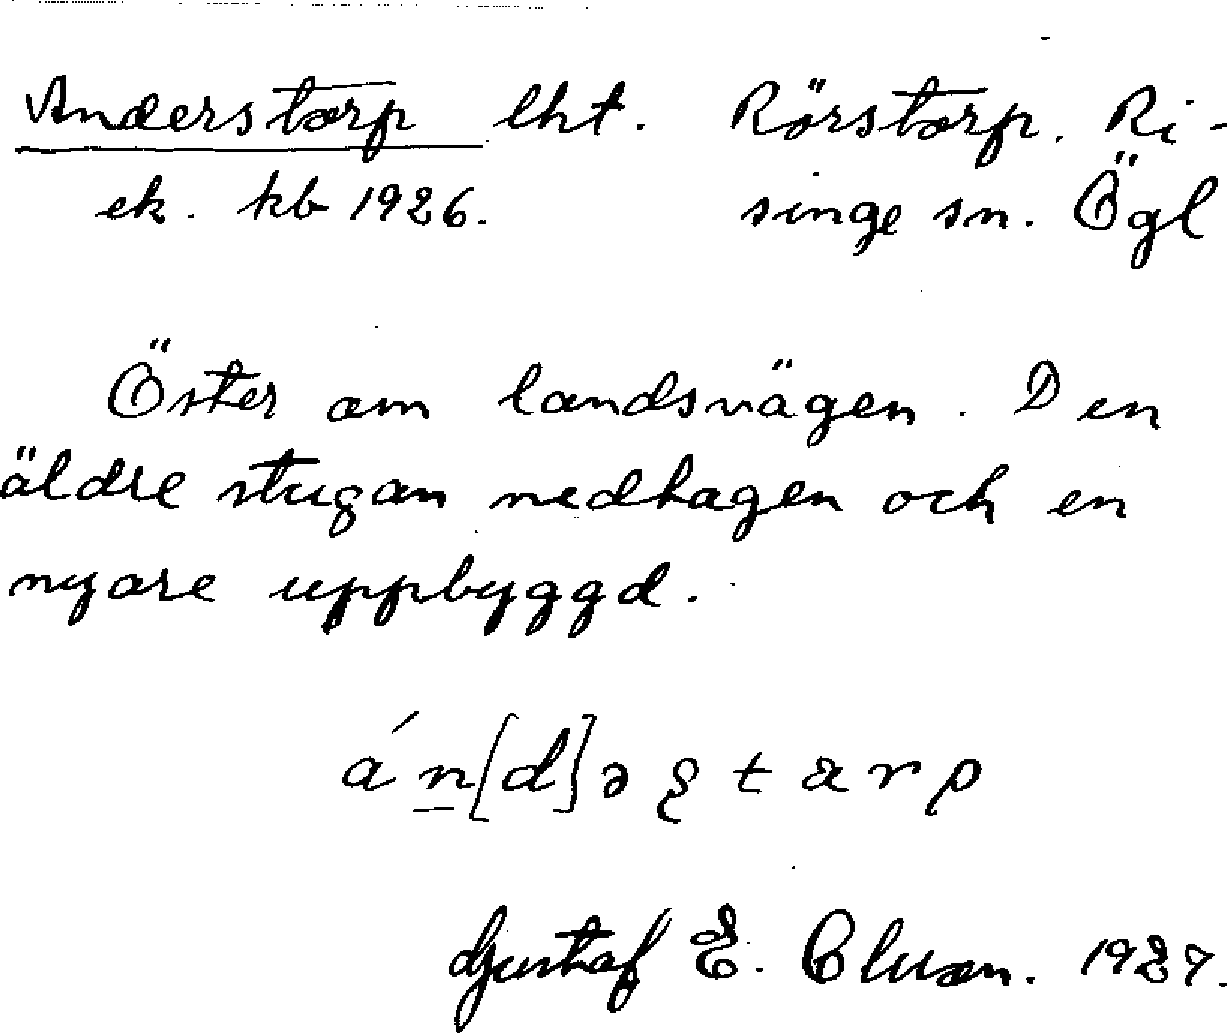 Anderstorp lht. Rörstorp. Ri-
ek. kb 1926. singe sn. Ögl
Öster om landsvägen. Den
äldre stugan nedtagen och en
nyare uppbyggd.
án[d]ə tarp
Gustaf E. 1927.